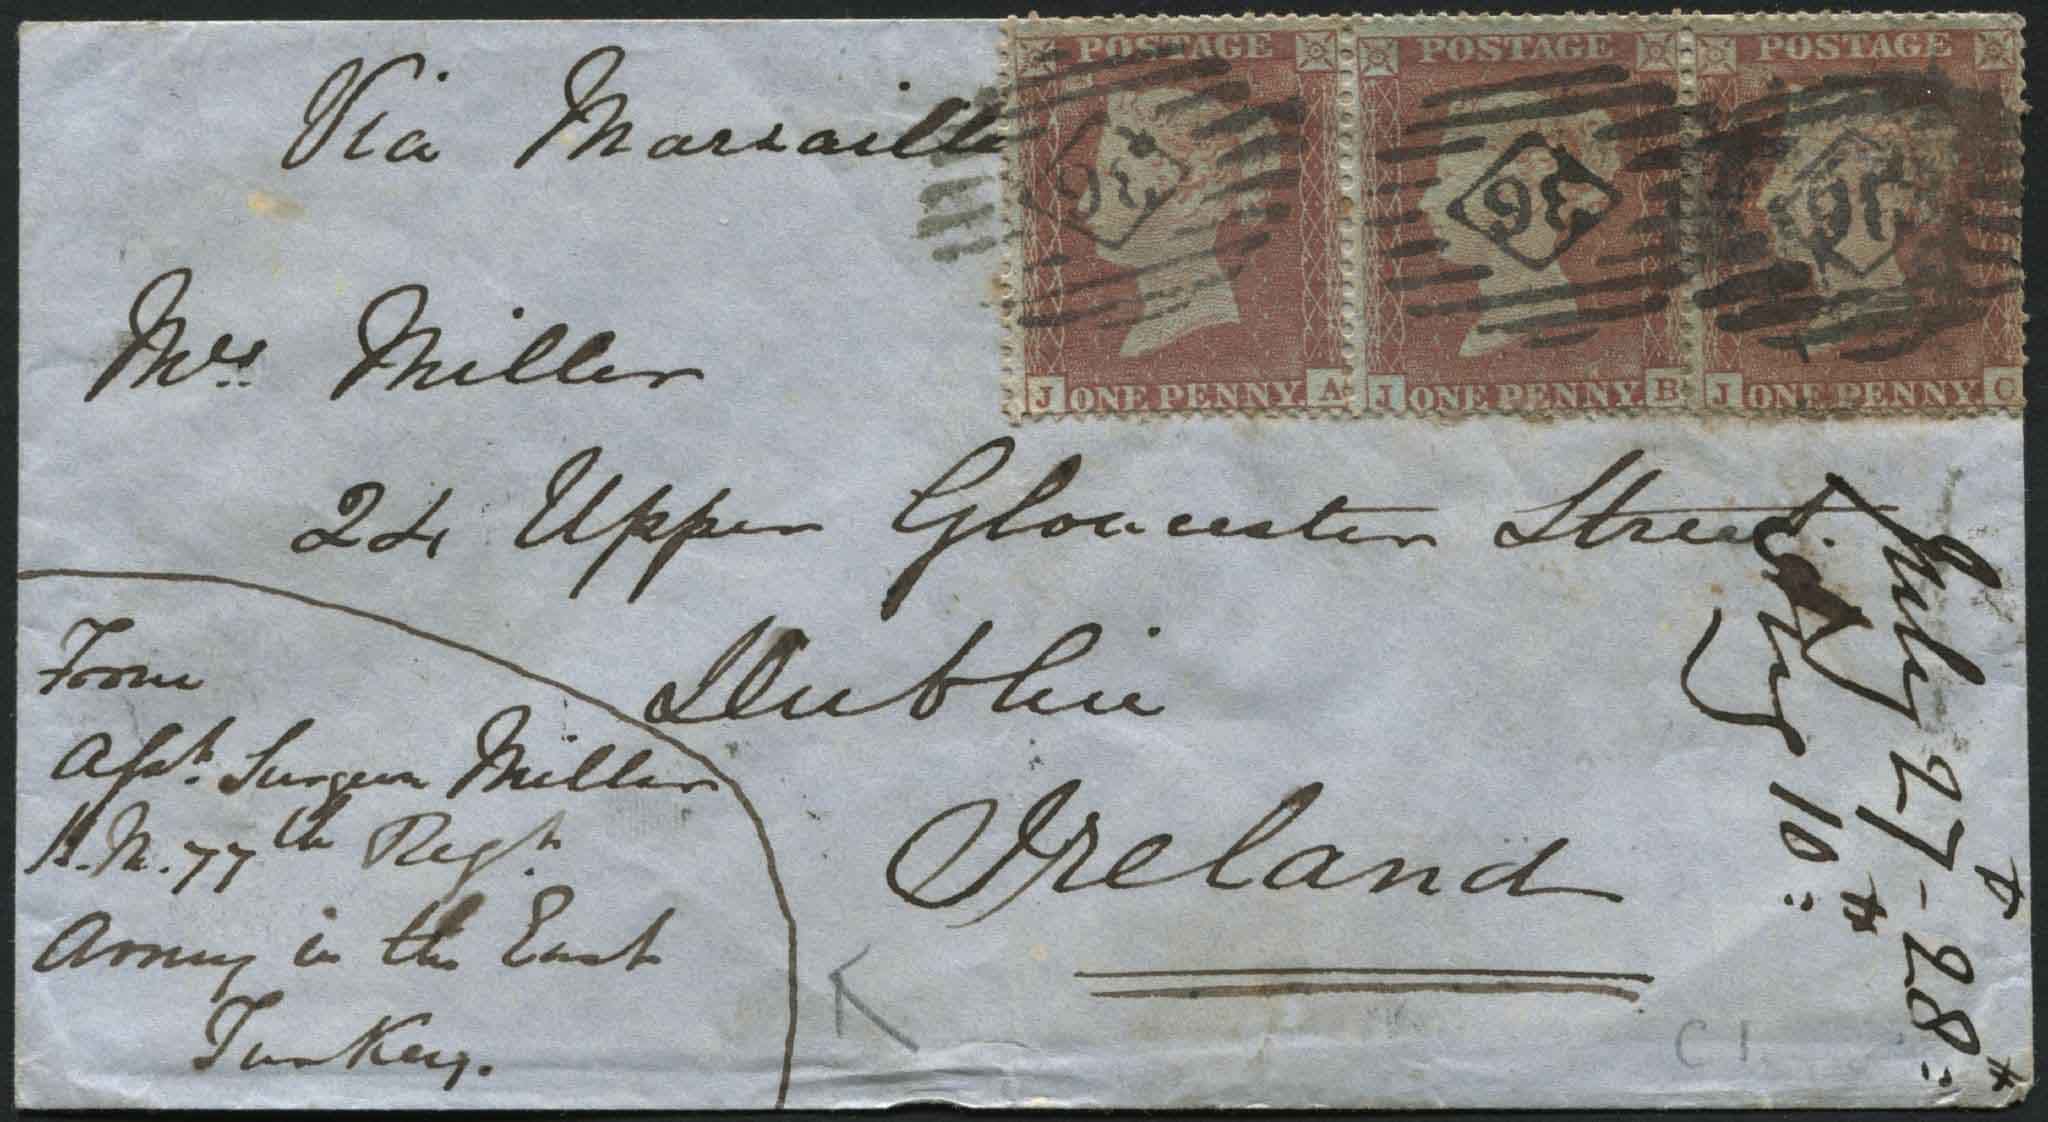 Via Marsaill
POSTAGE POSTAGE POSTAGE
J ONE PENNY. A J ONE PENNY. B J ONE PENNY. C
Mrs. Miller
24 Upper Gloucester Street.
Dublin
Ireland
From
Asst. Surgeon Miller
H.M. 77th Regt.
Army in the East
Turkey.
July 27 - 28
10
C 1